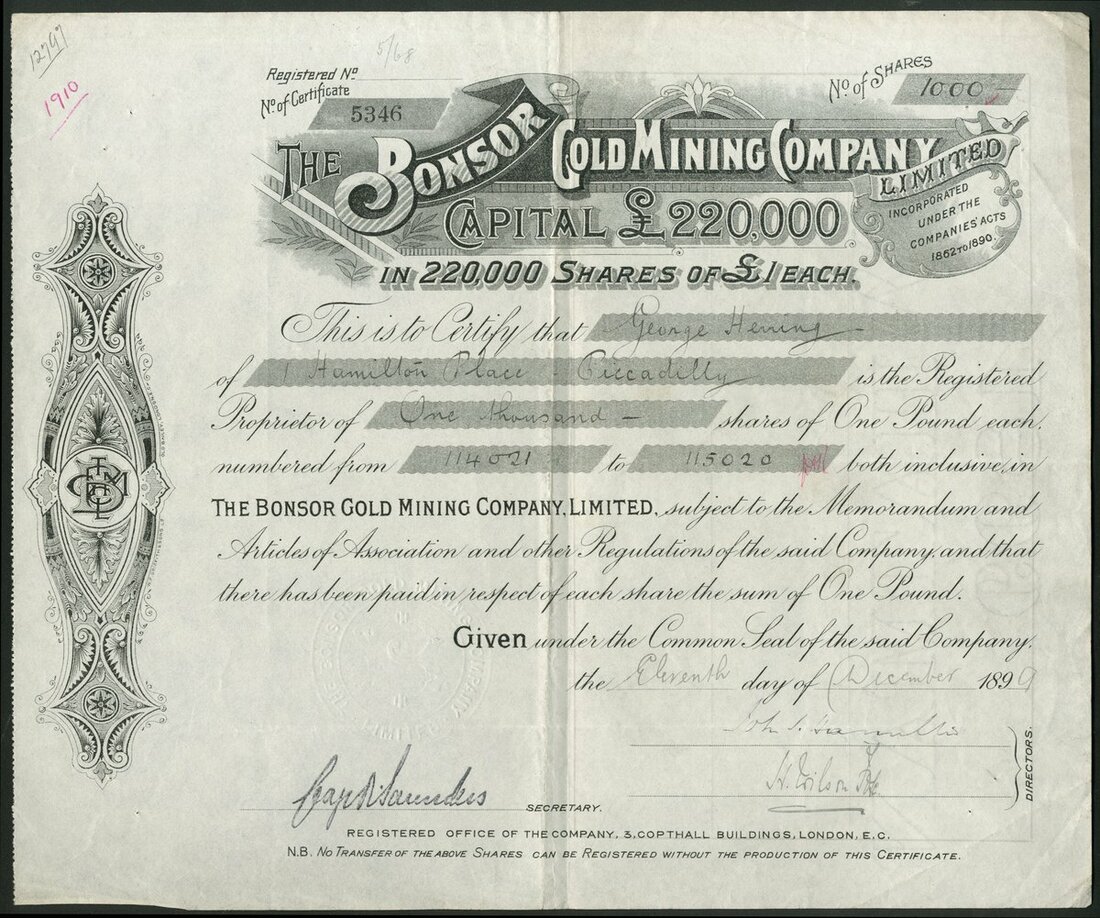 12797
1910
5/68
Registered Nº
Nº of Certificate
5346
Nº of Shares
1000
THE BONSOR GOLD MINING COMPANY
LIMITED
CAPITAL £220,000
INCORPORATED
UNDER THE
COMPANIES' ACTS
1862 TO 1890.
IN 220,000 SHARES OF £1 EACH.
This is to Certify that George Hering
of 1 Hamilton Place - Piccadilly is the Registered
Proprietor of One thousand - shares of One Pound each,
numbered from 114021 to 115020 both inclusive, in
THE BONSOR GOLD MINING COMPANY, LIMITED, subject to the Memorandum and
Articles of Association and other Regulations of the said Company, and that
there has been paid in respect of each share the sum of One Pound.
Given under the Common Seal of the said Company,
the Eleventh day of December 1899
DIRECTORS.
H. Wilson
SECRETARY.
REGISTERED OFFICE OF THE COMPANY, 3, COPTHALL BUILDINGS, LONDON, E.C.
N.B. No Transfer of the above Shares can be Registered without the production of this Certificate.